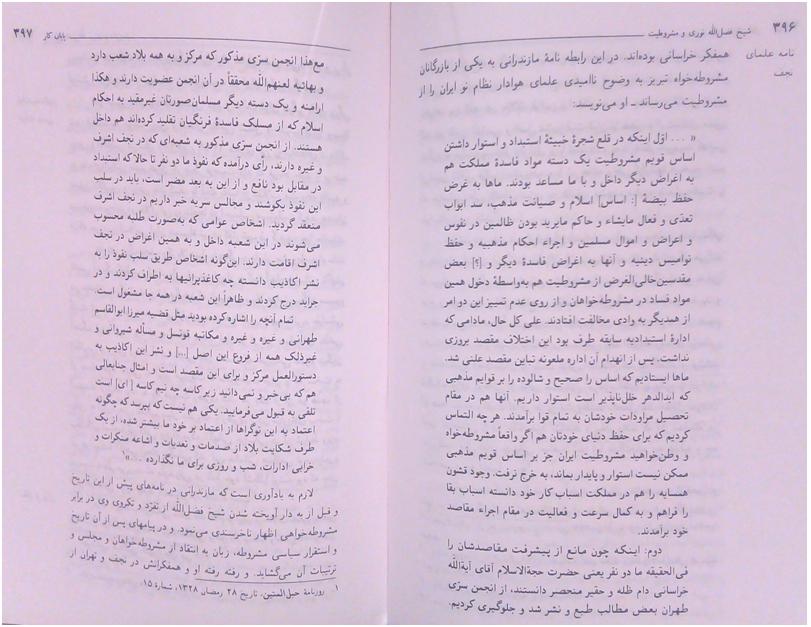 ۳۹۶
شیخ فضل‌الله نوری و مشروطیت
نامه علمای
نجف
همفکر خراسانی بوده‌اند. در این رابطه نامهٔ مازندرانی به یکی از بازرگانان
مشروطه‌خواه تبریز به وضوح ناامیدی علمای هوادار نظام نو ایران را از
مشروطیت می‌رساند ـ او می‌نویسد:
« ... اوّل اینکه در قلع شجرهٔ خبیثهٔ استبداد و استوار داشتن
اساس قویم مشروطیت یک دسته مواد فاسدهٔ مملکت هم
به اغراض دیگر داخل و با ما مساعد بودند. ماها به غرض
حفظ بیضهٔ [: اساس] اسلام و صیانت مذهب، سد ابواب
تعدّی و فعال مایشاء و حاکم مایرید بودن ظالمین در نفوس
و اعراض و اموال مسلمین و اجراء احکام مذهبیه و حفظ
نوامیس دینیه و آنها به اغراض فاسدهٔ دیگر و [؟] بعض
مقدسین خالی‌الغرض از مشروطیت هم به‌واسطهٔ دخول همین
مواد فساد در مشروطه‌خواهان و از روی عدم تمییز این دو امر
از همدیگر به وادی مخالفت افتادند. علی کل حال، مادامی که
ادارهٔ استبدادیه سابقه طرف بود این اختلاف مقصد بروزی
نداشت. پس از انهدام آن اداره ملعونه تباین مقصد علنی شد.
ماها ایستادیم که اساس را صحیح و شالوده را بر قوایم مذهبی
که ابدالدهر خلل‌ناپذیر است استوار داریم. آنها هم در مقام
تحصیل مراودات خودشان به تمام قوا برآمدند. هر چه التماس
کردیم که برای حفظ دنیای خودتان هم اگر واقعاً مشروطه‌خواه
و وطن‌خواهید مشروطیت ایران جز بر اساس قویم مذهبی
ممکن نیست استوار و پایدار بماند، به خرج نرفت. وجود قشون
همسایه را هم در مملکت اسباب کار خود دانسته اسباب بقا
را فراهم و به کمال سرعت و فعالیت در مقام اجراء مقاصد
خود برآمدند.
دوم: اینکه چون مانع از پیشرفت مقاصدشان را
فی‌الحقیقه ما دو نفر یعنی حضرت حجةالاسلام آقای آیةالله
خراسانی دام ظله و حقیر منحصر دانستند، از انجمن سرّی
طهران بعض مطالب طبع و نشر شد و جلوگیری کردیم.
پایان کار ۳۹۷
مع‌هذا انجمن سرّی مذکور که مرکز و به همه بلاد شعب دارد
و بهائیه لعنهم‌الله محققاً در آن انجمن عضویت دارند و هکذا
ارامنه و یک دسته دیگر مسلمان‌صورتان غیرمقید به احکام
اسلام که از مسلک فاسدهٔ فرنگیان تقلید کرده‌اند هم داخل
هستند. از انجمن سرّی مذکور به شعبه‌ای که در نجف اشرف
و غیره دارند، رأی درآمده که نفوذ ما دو نفر تا حالا که استبداد
در مقابل بود نافع و از این به بعد مضر است، باید در سلب
این نفوذ بکوشند و مجالس سریه خبر داریم در نجف اشرف
منعقد گردید. اشخاص عوامی که به‌صورت طلبه محسوب
می‌شوند در این شعبه داخل و به همین اغراض در نجف
اشرف اقامت دارند. این‌گونه اشخاص طریق سلب نفوذ را به
نشر اکاذیب دانسته چه کاغذپرانیها به اطراف کردند و در
جراید درج کردند و ظاهراً این شعبه در همه جا مشغول است.
تمام آنچه را اشاره کرده بودید مثل قضیه میرزا ابوالقاسم
طهرانی و غیره و غیره و مکاتبه قونسل و مسأله شیروانی و
غیرذلک همه از فروع این اصل [...] و نشر این اکاذیب به
دستورالعمل مرکز و برای این مقصد است و امثال جنابعالی
هم که بی‌خبر و نمی‌دانید زیر کاسه چه نیم کاسه [ ای] است
تلقی به قبول می‌فرمایید. یکی هم نیست که بپرسد که چگونه
اعتماد به این نوگراها از اعتماد بر خود ما بیشتر شده، از یک
طرف شکایت بلاد از صدمات و تعدیات و اشاعه منکرات و
خرابی ادارات، شب و روزی برای ما نگذارده ... »۱
لازم به یادآوری است که مازندرانی در نامه‌های پیش از این تاریخ
و قبل از به دار آویخته شدن شیخ فضل‌الله از تفرّد و تکروی وی در برابر
مشروطه‌خواهی اظهار ناخرسندی می‌نمود. و در پیامهای پس از آن تاریخ
و استقرار سیاسی مشروطه، زبان به انتقاد از مشروطه‌خواهان و مجلس و
ترتیبات آن می‌گشاید. و رفته رفته او و همفکرانش در نجف و تهران از
۱. روزنامهٔ حبل‌المتین، تاریخ ۲۸ رمضان ۱۳۲۸، شمارهٔ ۱۵.